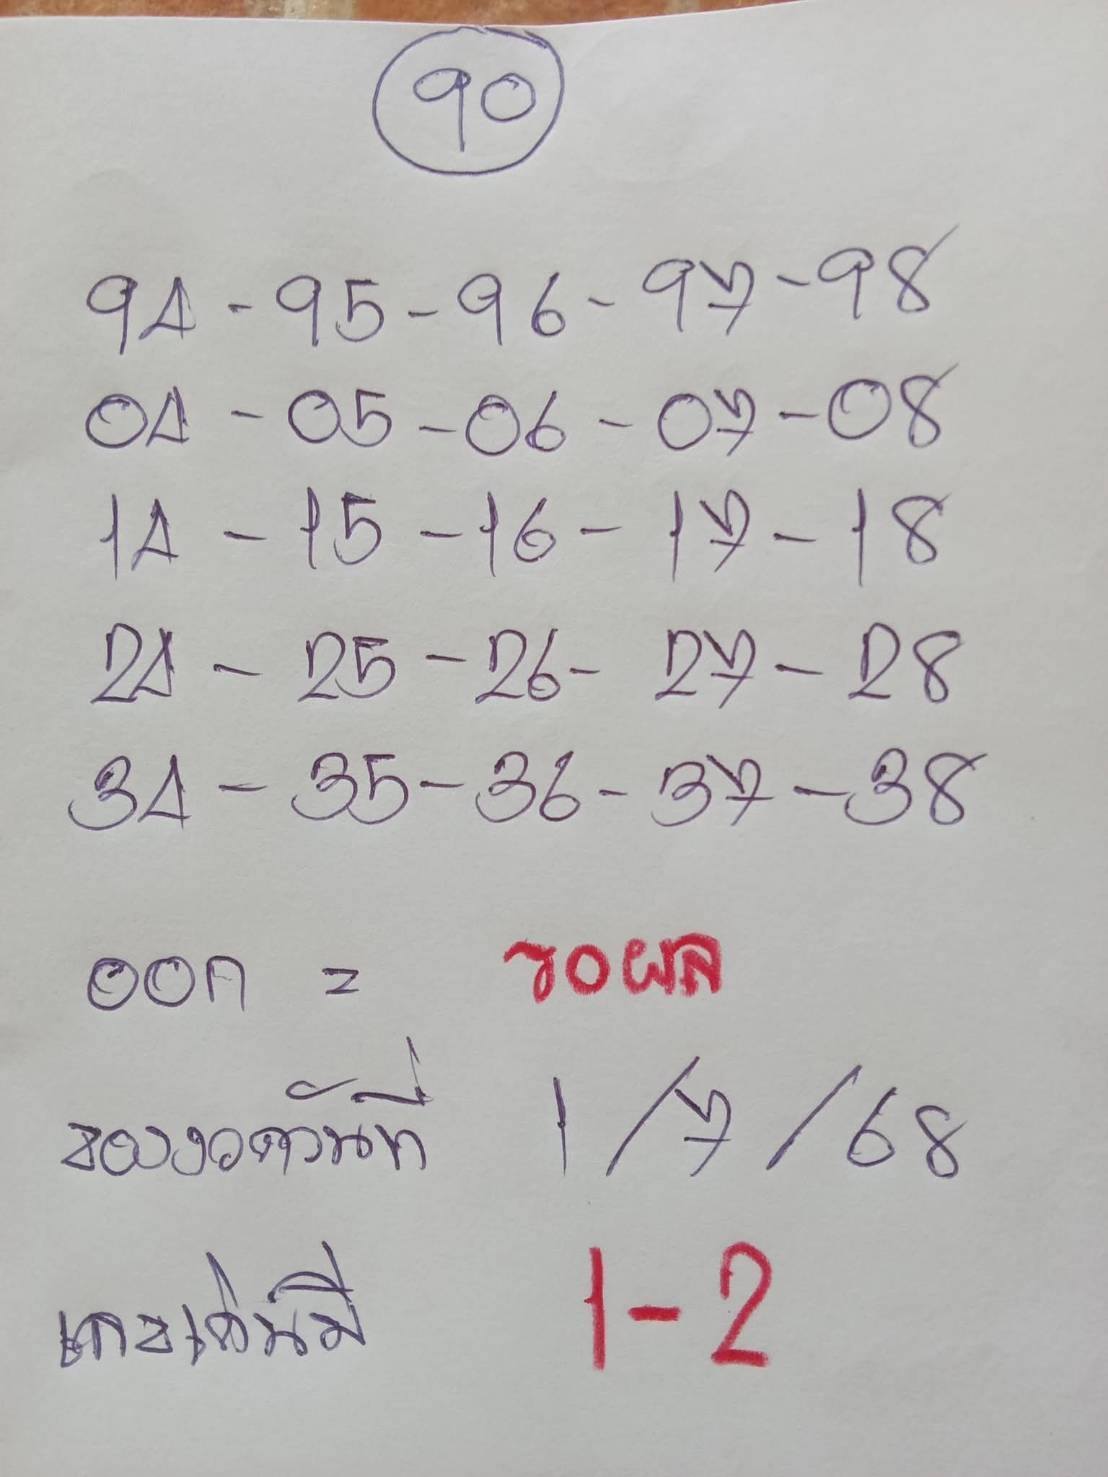 90
94 - 95 - 96 - 97 - 98
04 - 05 - 06 - 07 - 08
14 - 15 - 16 - 17 - 18
24 - 25 - 26 - 27 - 28
34 - 35 - 36 - 37 - 38
ออก = รอผล
ของงวดวันที่ 1/7/68
เลขเด่นมี 1-2